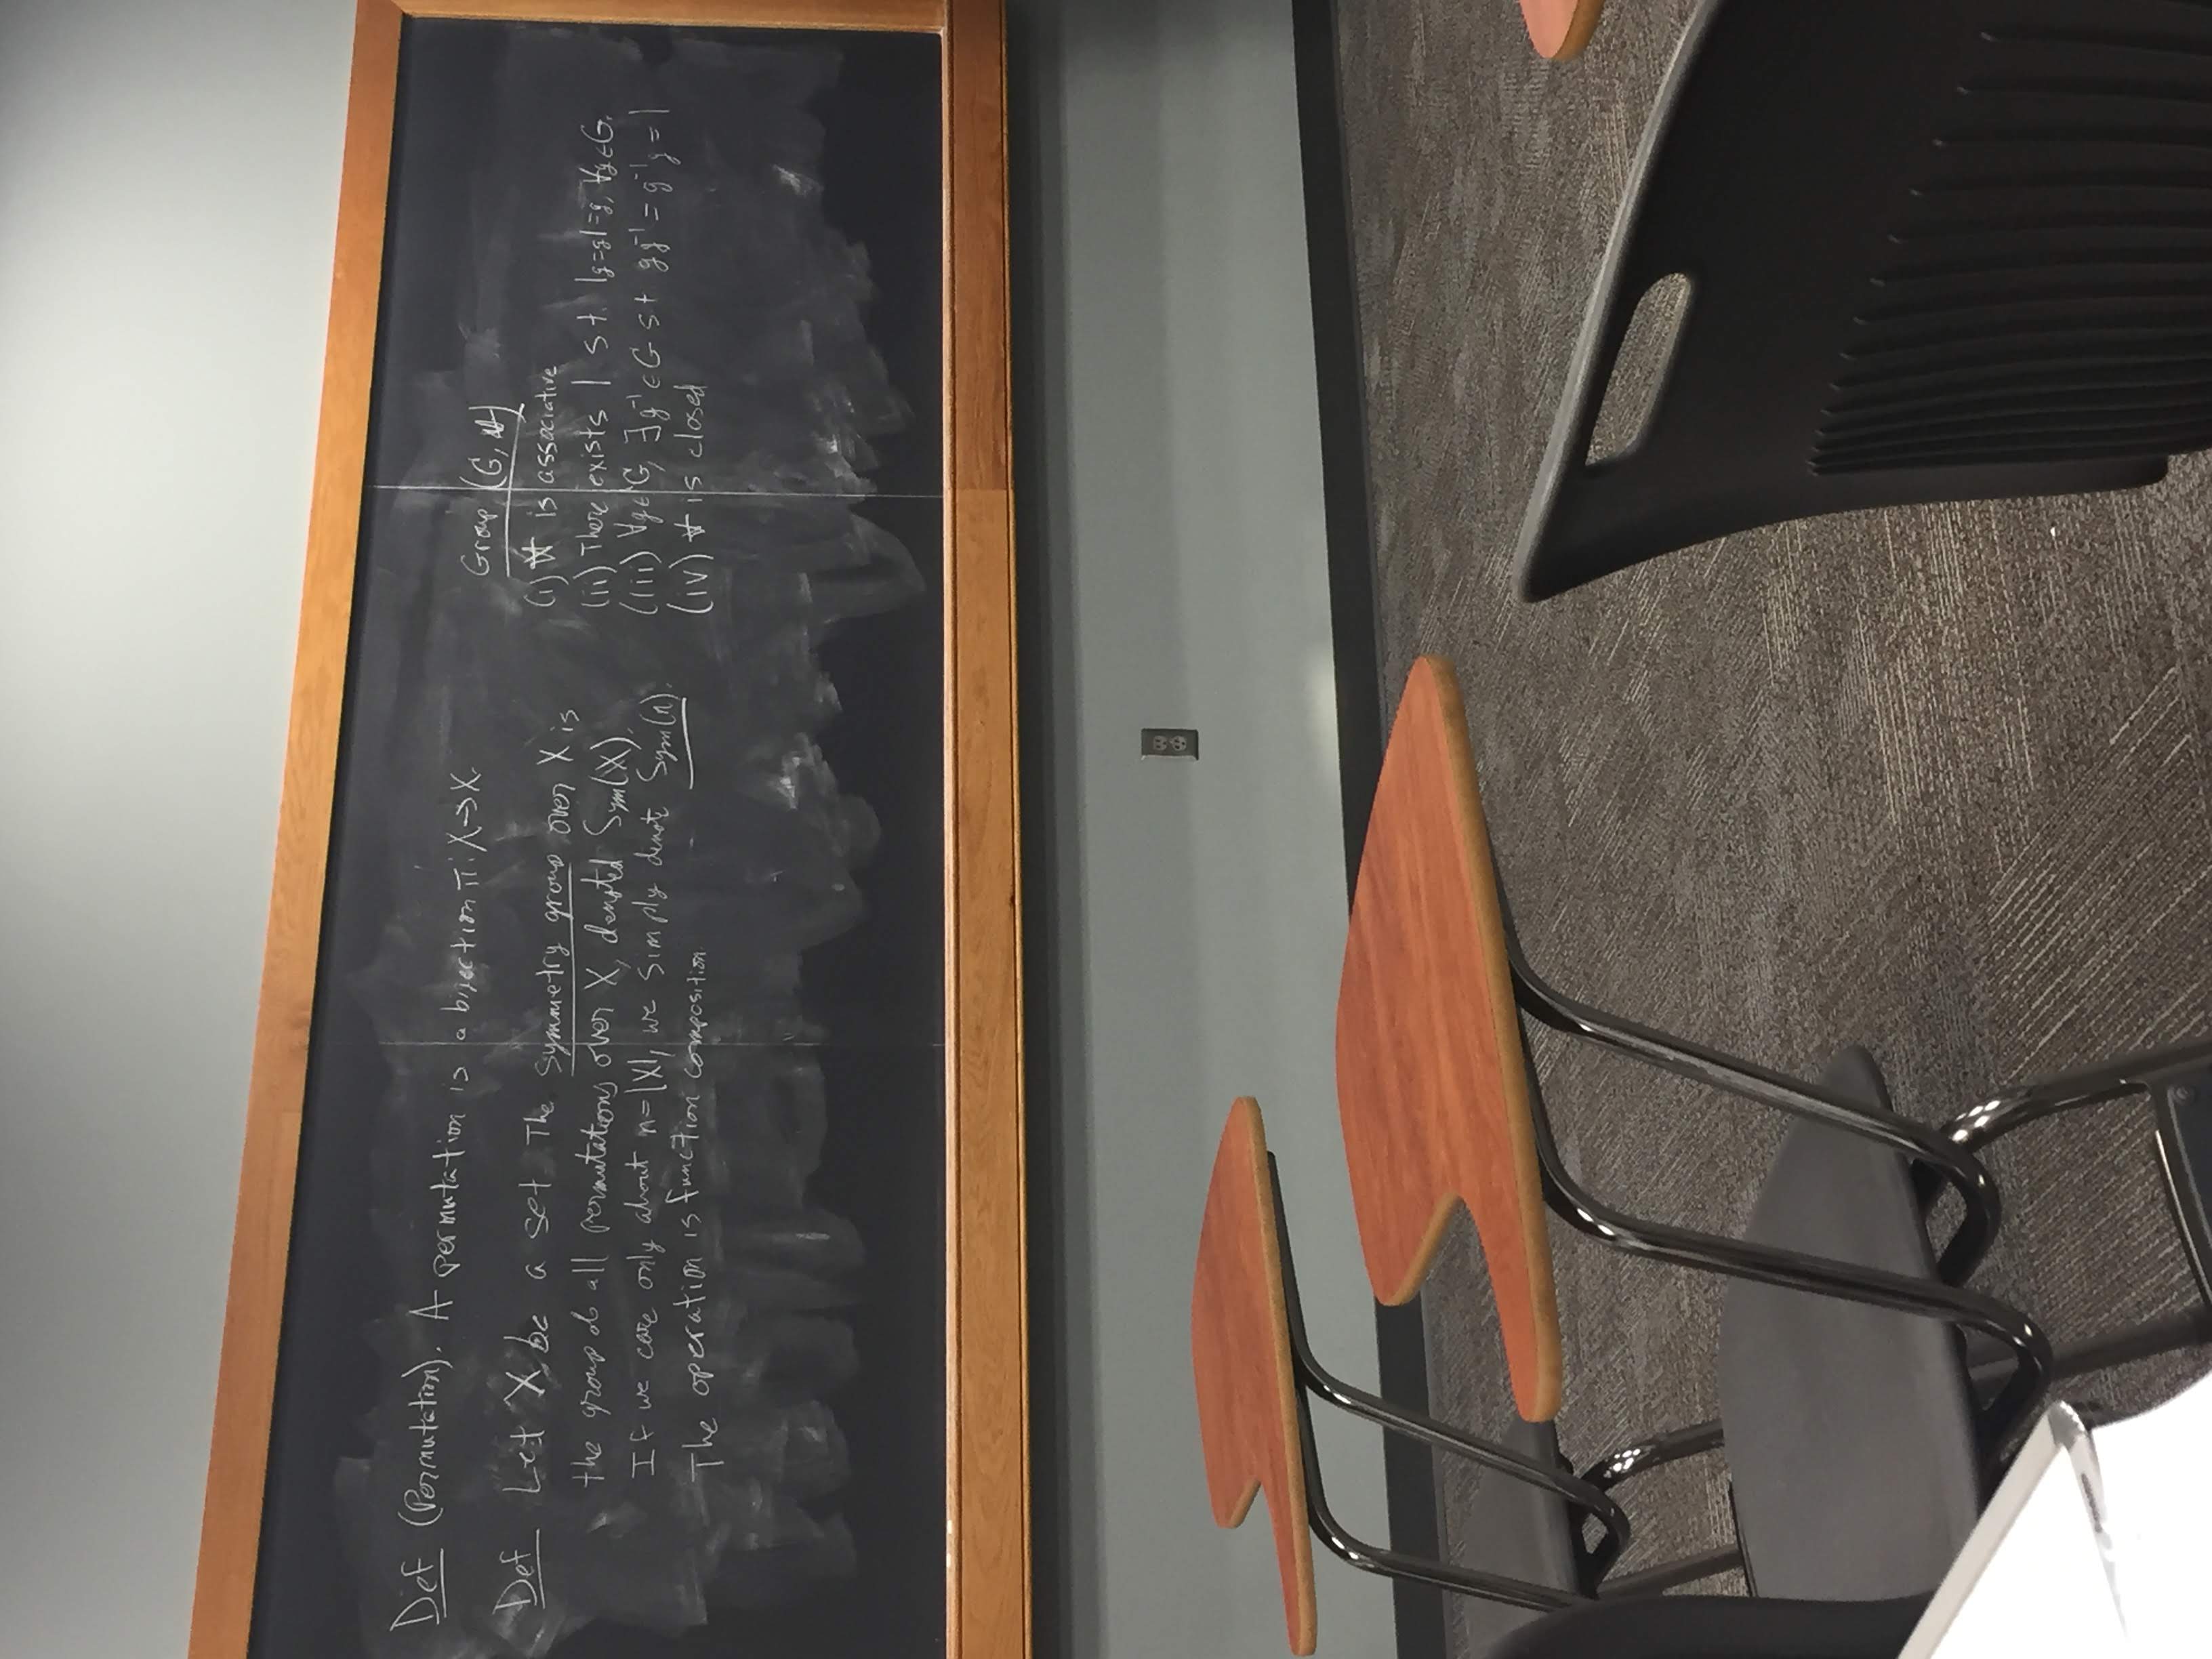 Def (Permutation). A permutation is a bijection π: X→X.
Def Let X be a set. The symmetry group over X is
the group of all permutations over X, denoted Sym(X).
If we care only about n=|X|, we simply denote Sym(n).
The operation is function composition
Group (G, *)
(i) * is associative
(ii) There exists 1 s.t. 1g=g1=g, ∀g∈G.
(iii) ∀g∈G, ∃g⁻¹∈G st gg⁻¹=g⁻¹g=1
(iv) * is closed